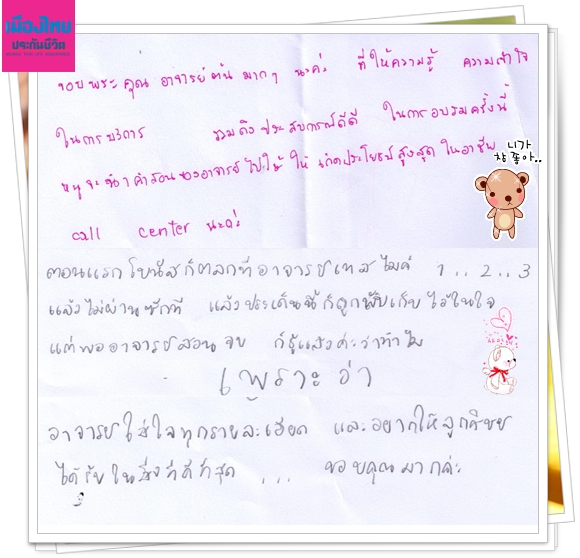 เมืองไทย
ประกันชีวิต
ขอบพระคุณ อาจารย์ต้น มากๆ นะค่ะ ที่ให้ความรู้ ความเข้าใจ
ในการบริการ รวมถึงประสบการณ์ดีดี ในการอบรมครั้งนี้
หนูจะนำคำสอนของอาจารย์ ไปใช้ ให้ เกิดประโยชน์สูงสุด ในอาชีพ
call center นะค่ะ
니가
참 좋아..
ตอนแรก โบนัสก็ตลกที่อาจารย์เทสไมค์ 1 .. 2 .. 3
แล้วไม่ผ่านซักที แล้วประเด็นนี้ก็ถูกพับเก็บไว้ในใจ
แต่พออาจารย์สอนจบ ก็รู้แล้วค่ะว่าทำไม
เพราะว่า
อาจารย์ใส่ใจทุกรายละเอียด และอยากให้ลูกศิษย์
ได้รับในสิ่งที่ดีที่สุด ... ขอบคุณมากค่ะ